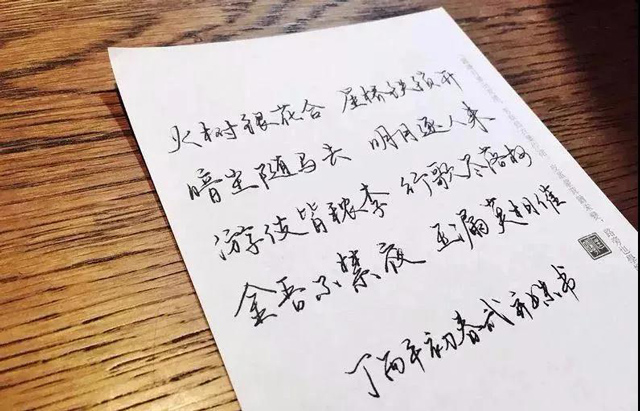 火树银花合 星桥铁锁开
暗尘随马去 明月逐人来
游伎皆秾李 行歌尽落梅
金吾不禁夜 玉漏莫相催
丁酉年初春 书